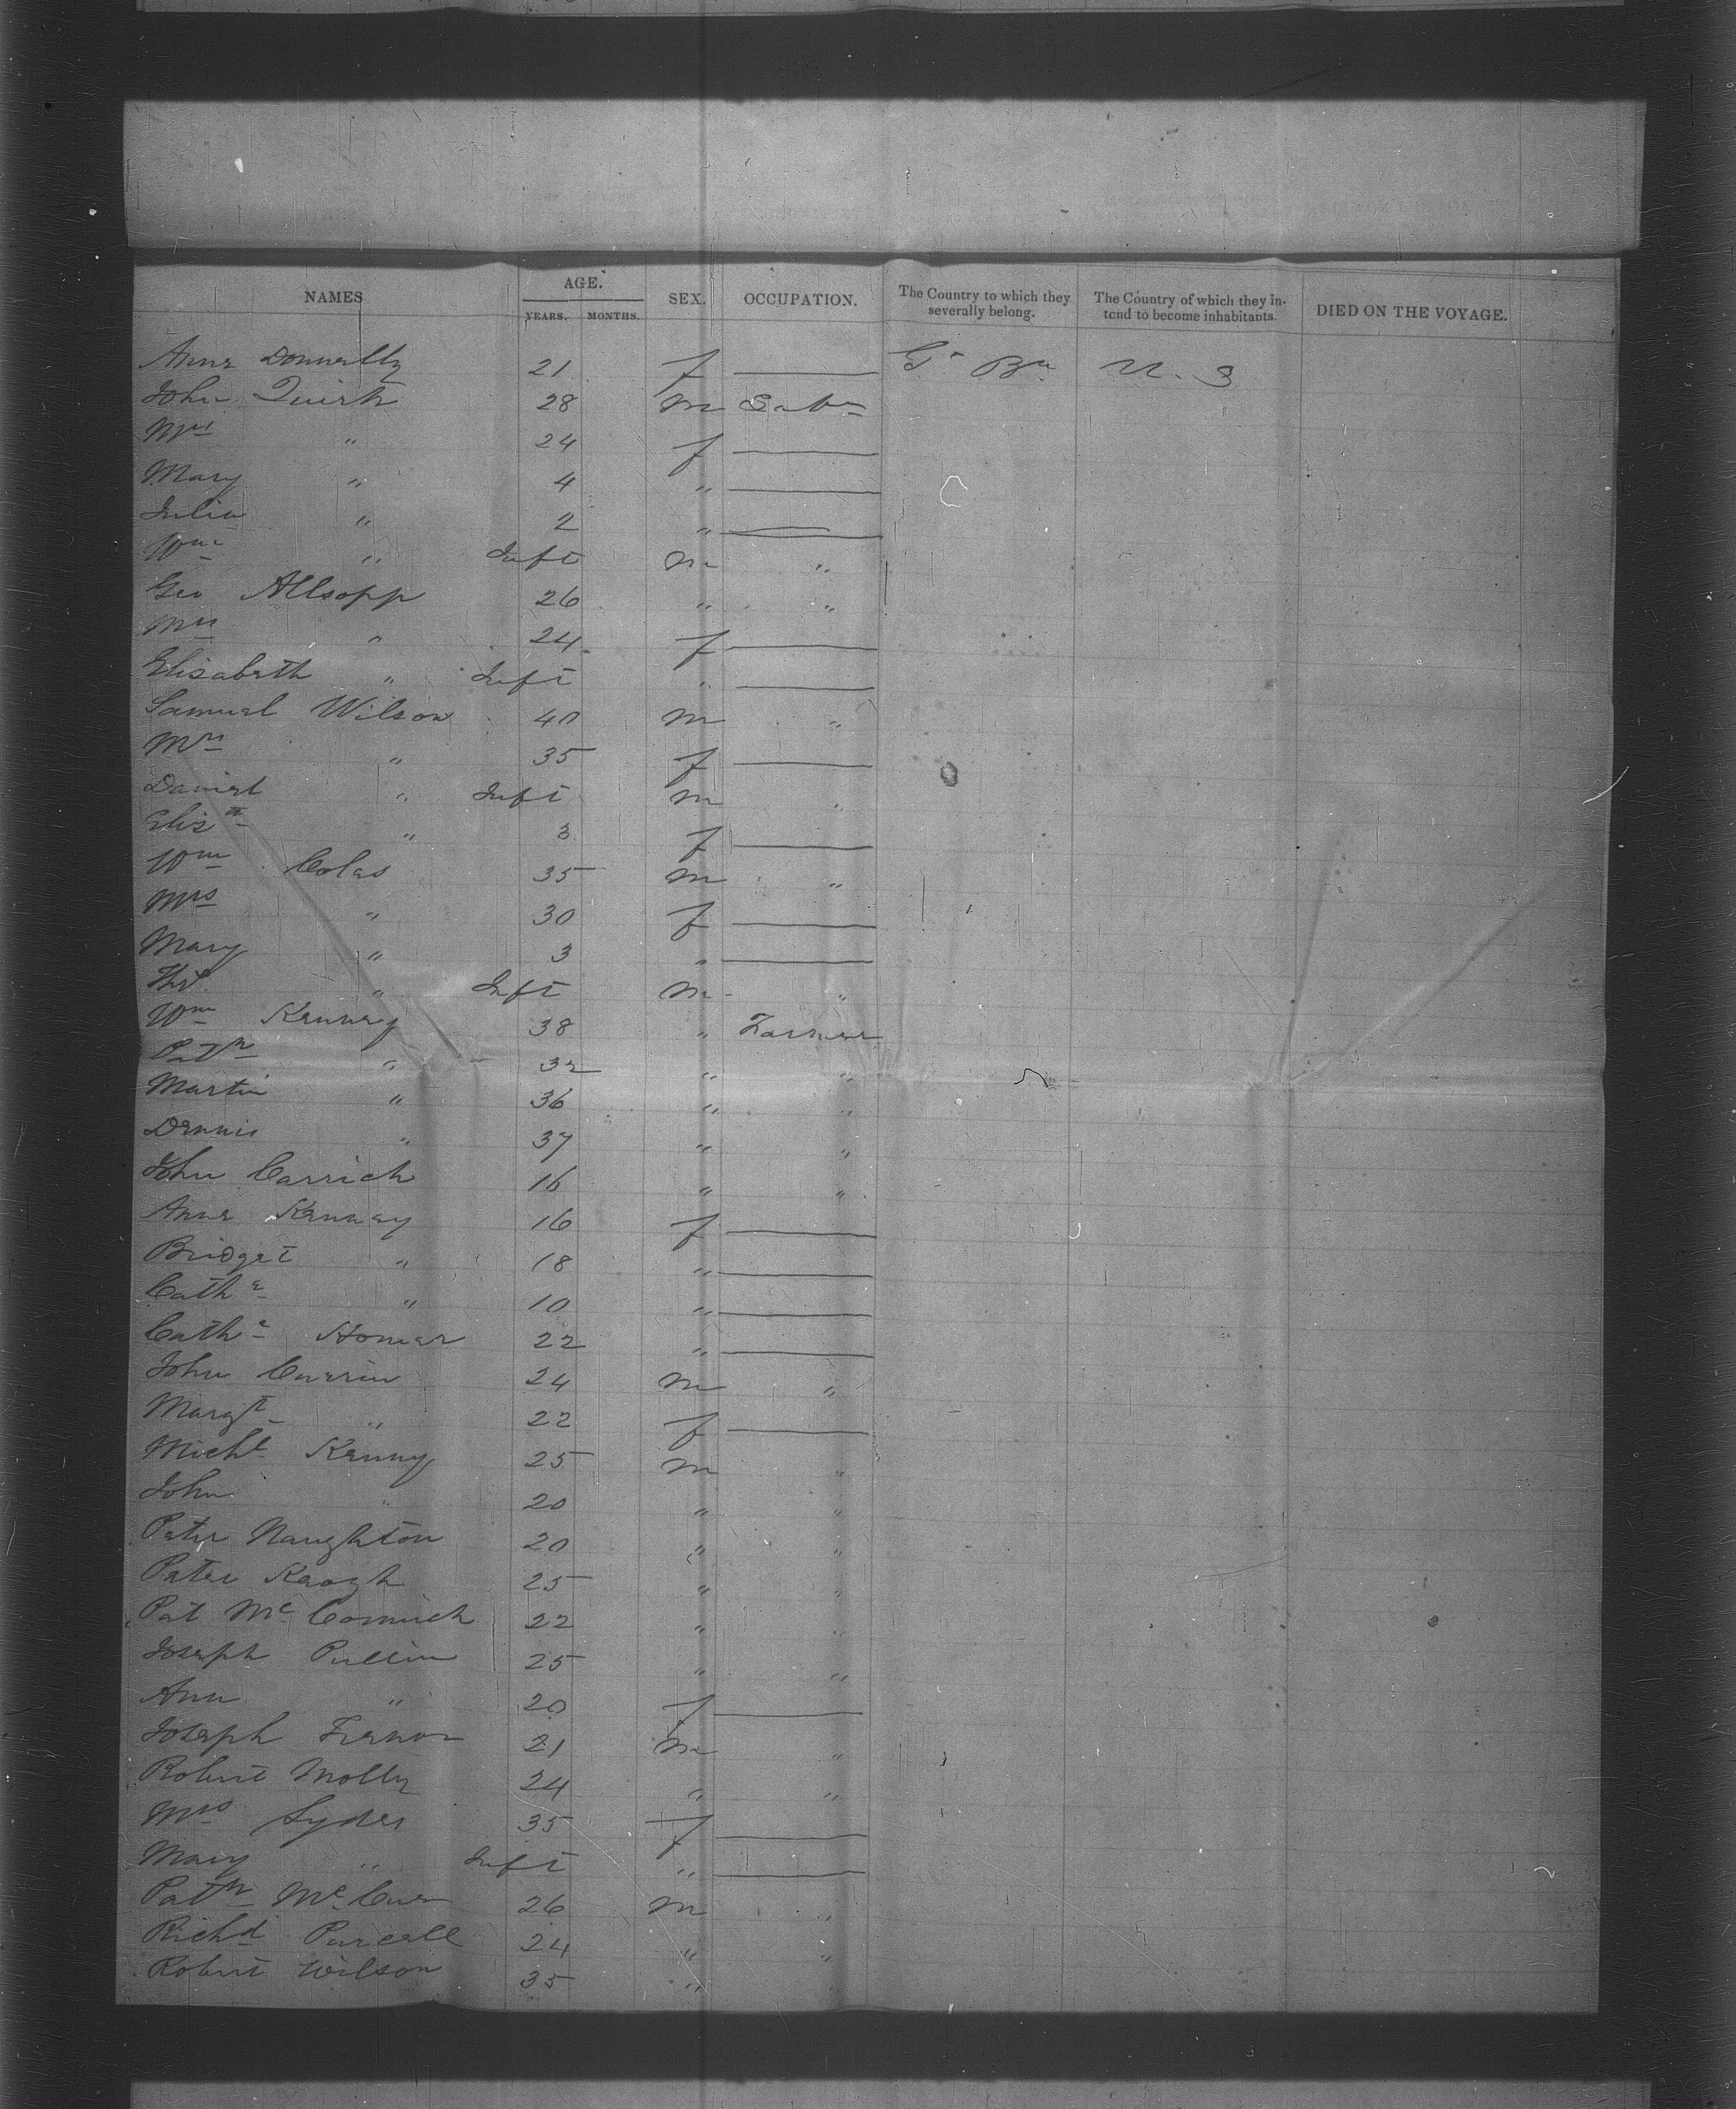 NAMES AGE. SEX. OCCUPATION. The Country to which they severally belong. The Country of which they intend to become inhabitants. DIED ON THE VOYAGE.
YEARS. MONTHS.
Anne Donnelly 21 f —— Gt Bn U. S
John Quirk 28 m Labr
Mrs " 24 f ——
Mary " 4 " ——
Julia " 2 " ——
Wm " Inft m "
Geo Allsopp 26 " "
Mrs " 24 f ——
Elisabeth " Inft " ——
Samuel Wilson 40 m "
Mrs " 35 f ——
Daniel " Inft m "
Elizth " 3 f ——
Wm Coles 35 m "
Mrs " 30 f ——
Mary " 3 " ——
Ths. " Inft m "
Wm Kenney 38 " Farmer
Patk " 32 " "
Martin " 36 " "
Dennis " 37 " "
John Carrick 16 " "
Anne Kennay 16 f ——
Bridget " 18 " ——
Cathe " 10 " ——
Cathe Homer 22 " ——
John Currin 24 m "
Margt " 22 f ——
Michl Kenny 25 m "
John " 20 " "
Peter Naughton 20 " "
Peter Keogh 25 " "
Pat McCormick 22 " "
Joseph Pullin 25 " "
Ann " 20 f ——
Joseph 21 m "
Robert Molly 24 " "
Mrs Sydes 35 f ——
Mary " Inft " ——
Patk 26 m "
Richd Purcell 24 " "
Robert Wilson 35 " "